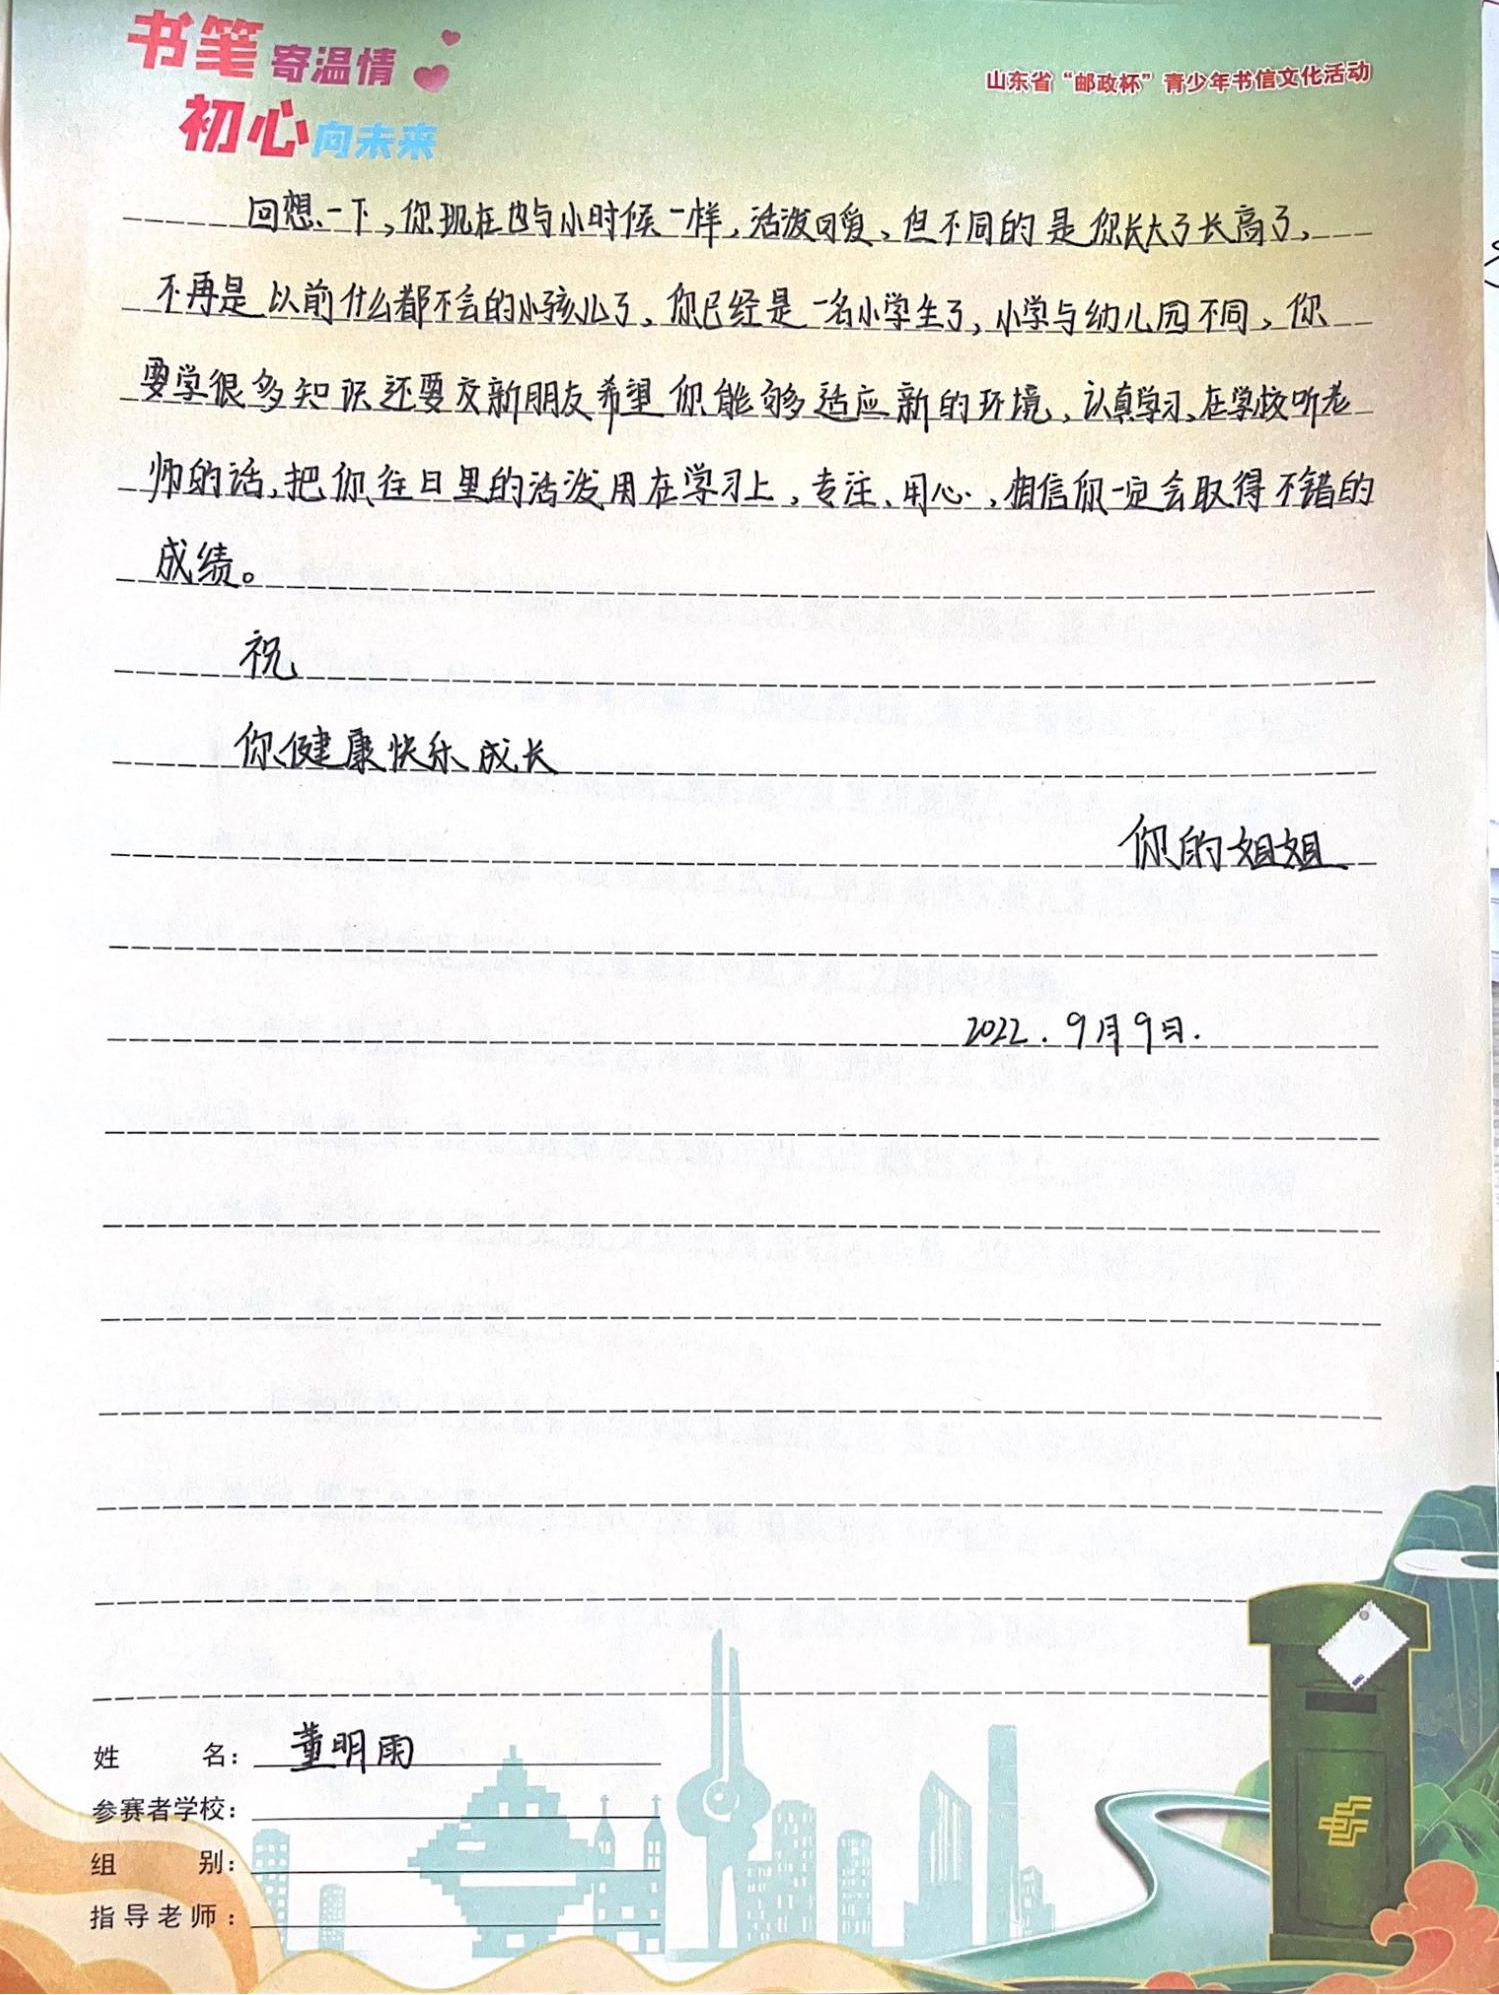 书笔寄温情
初心向未来
山东省“邮政杯”青少年书信文化活动
回想一下,你现在也与小时候一样,活泼可爱、但不同的是你长大了长高了、
不再是以前什么都不会的小孩儿了、你已经是一名小学生了,小学与幼儿园不同、你
要学很多知识还要交新朋友希望你能够适应新的环境、认真学习、在学校听老
师的话,把你往日里的活泼用在学习上,专注、用心,相信你一定会取得不错的
成绩。
祝
你健康快乐成长
你的姐姐
2022.9月9日.
姓名:董明雨
参赛者学校:
组别:
指导老师: